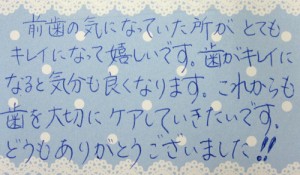 前歯の気になっていた所が とても
キレイになって嬉しいです。歯がキレイに
なると気分も良くなります。これからも
歯を大切に ケアしていきたいです。
どうもありがとうございました!!